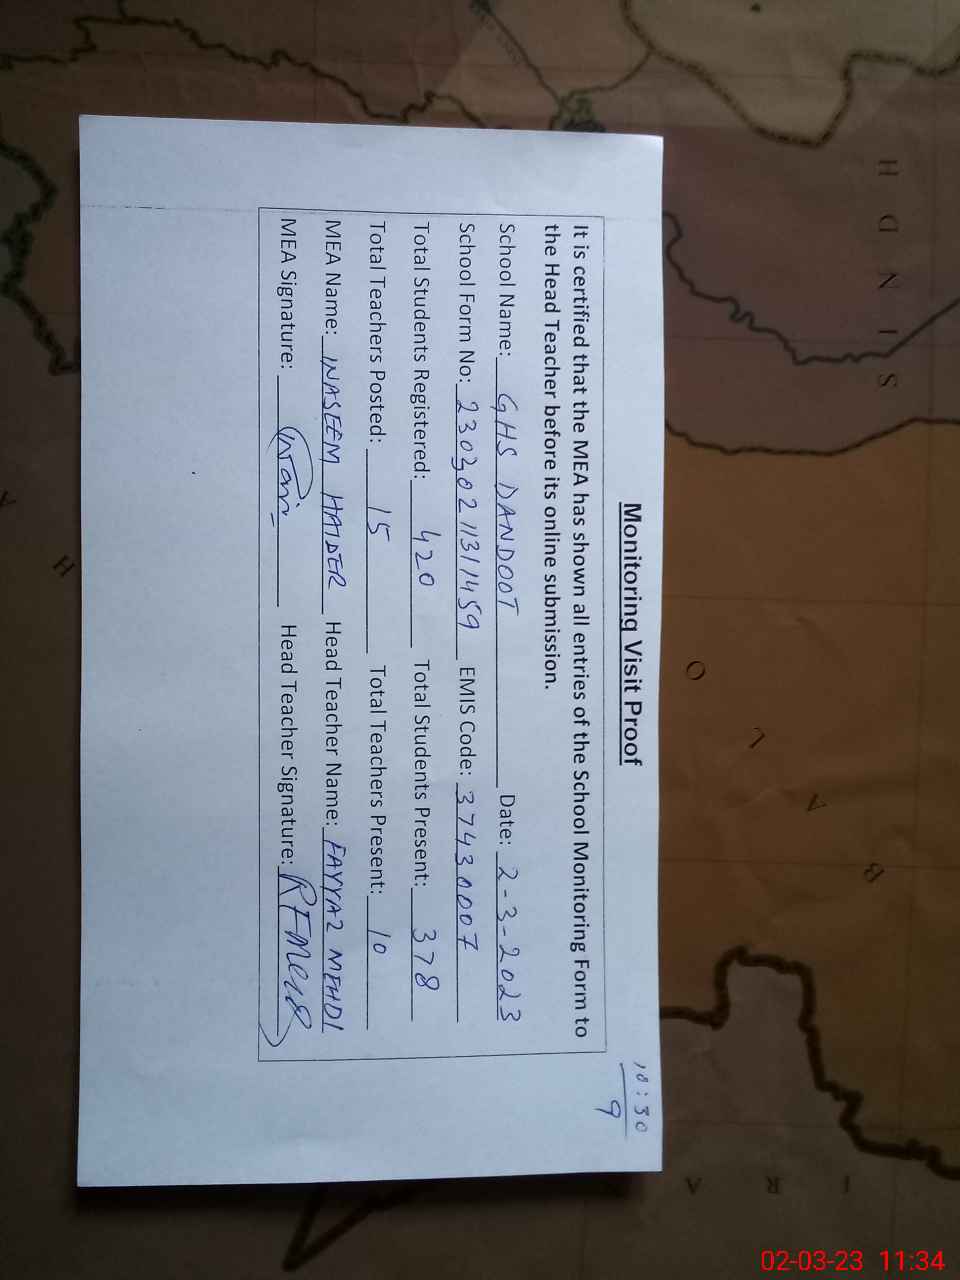 10:30
9
Monitoring Visit Proof
It is certified that the MEA has shown all entries of the School Monitoring Form to
the Head Teacher before its online submission.
School Name: GHS DANDOOT Date: 2-3-2023
School Form No: 2303021131 1459 EMIS Code: 37430007
Total Students Registered: 420 Total Students Present: 378
Total Teachers Posted: 15 Total Teachers Present: 10
MEA Name: INASEEM HAIDER Head Teacher Name: FAYYAZ MEHDI
MEA Signature: Head Teacher Signature:
H D N I S
O L A B
I R A
H
02-03-23 11:34